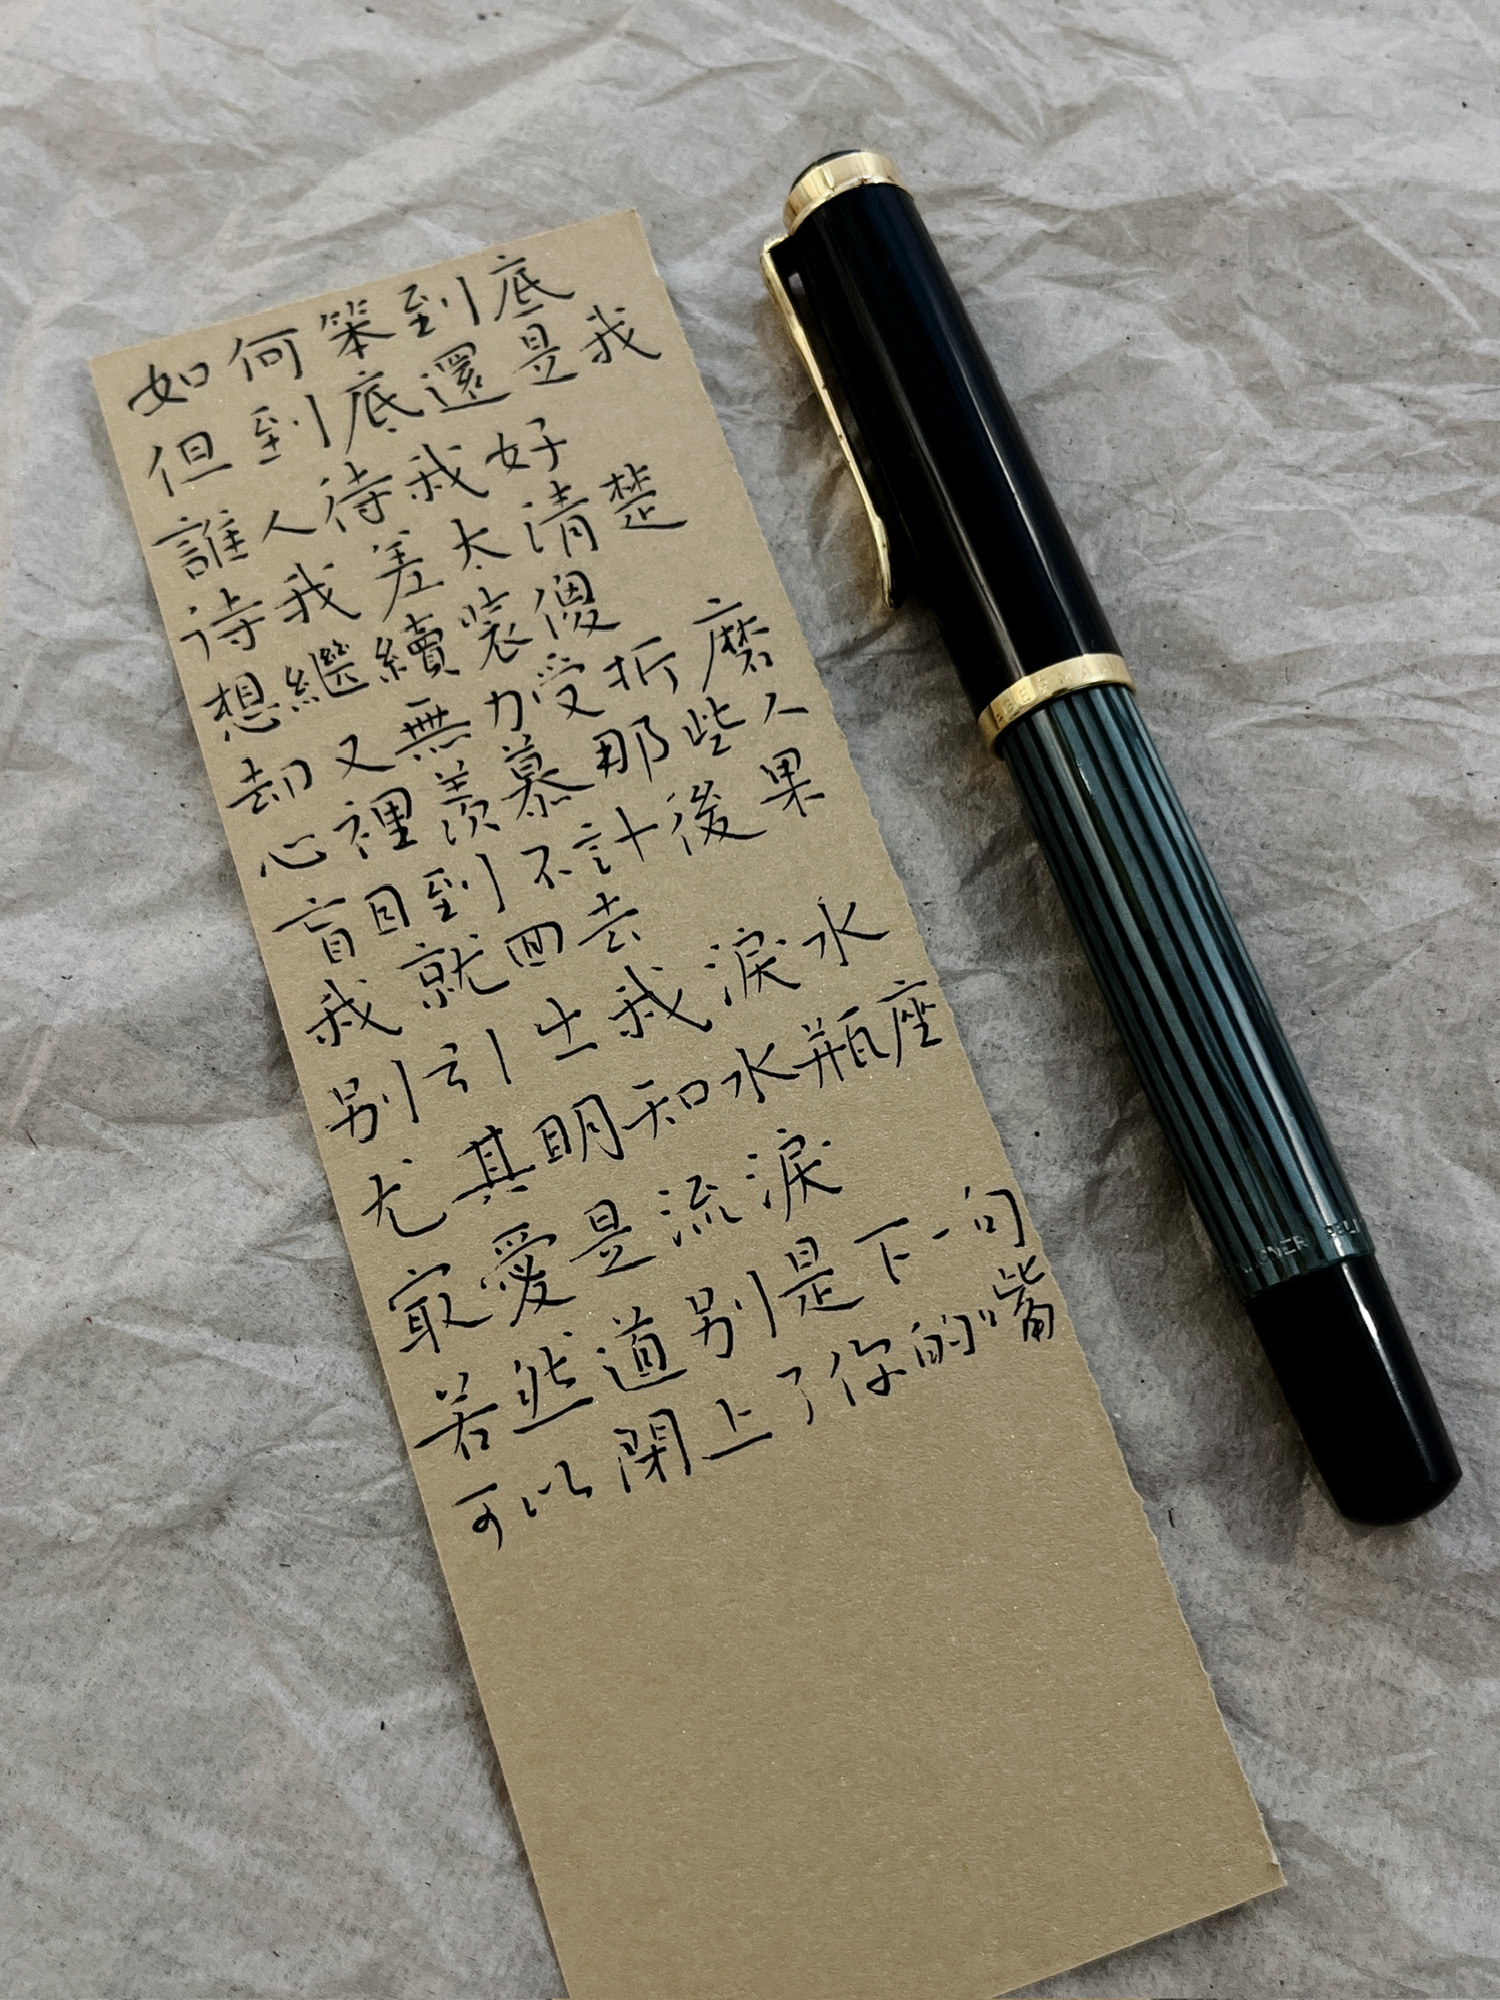 如何笨到底
但到底還是我
誰人待我好
待我差太清楚
想繼續裝傻
却又無力受折磨
心裡羨慕那些人
盲目到不計後果
我就回去
別引出我淚水
尤其明知水瓶座
最愛是流淚
若然道別是下一句
可以閉上了你的嘴